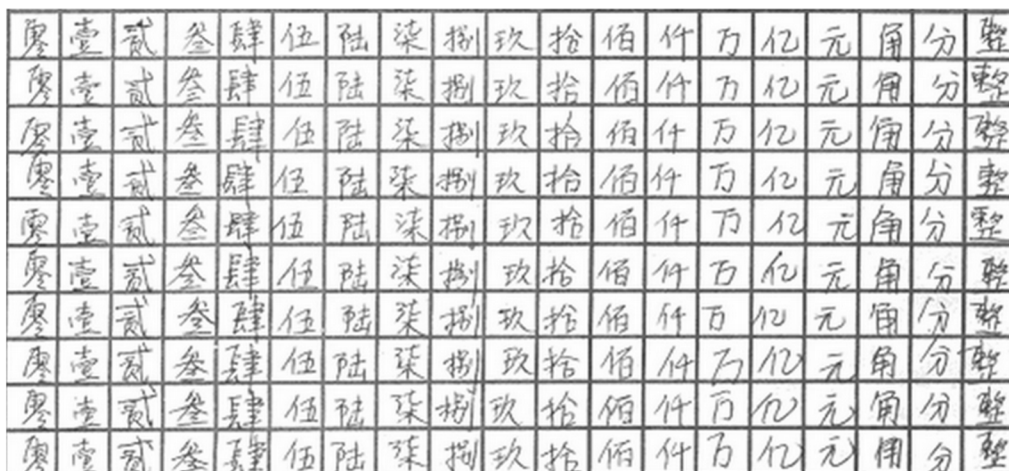 零壹贰叁肆伍陆柒捌玖拾佰仟万亿元角分整
零壹贰叁肆伍陆柒捌玖拾佰仟万亿元角分整
零壹贰叁肆伍陆柒捌玖拾佰仟万亿元角分整
零壹贰叁肆伍陆柒捌玖拾佰仟万亿元角分整
零壹贰叁肆伍陆柒捌玖拾佰仟万亿元角分整
零壹贰叁肆伍陆柒捌玖拾佰仟万亿元角分整
零壹贰叁肆伍陆柒捌玖拾佰仟万亿元角分整
零壹贰叁肆伍陆柒捌玖拾佰仟万亿元角分整
零壹贰叁肆伍陆柒捌玖拾佰仟万亿元角分整
零壹贰叁肆伍陆柒捌玖拾佰仟万亿元角分整